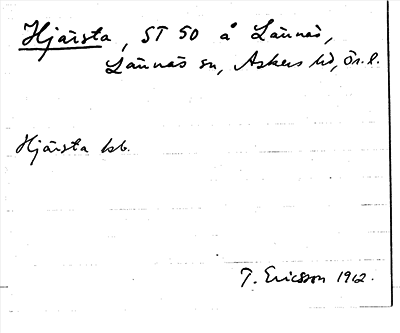 Hjärsta, ST 50 å Lännäs,
Lännäs sn, Askers hd, Ör. l.
Hjärsta bb.
T. Ericsson 1962.